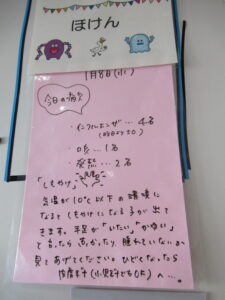 ほけん
1月8日(水)
今日の病欠
・インフルエンザ…4名
・咳…1名
・発熱…2名
「しもやけ」
気温が10℃以下の環境に
なると しもやけになる子が出て
きます。手足が「いたい」「かゆい」
と言ったら 赤かったり 腫れていないか
見てあげてください。ひどくなったら
皮膚科(小児科でもOK)へ…。